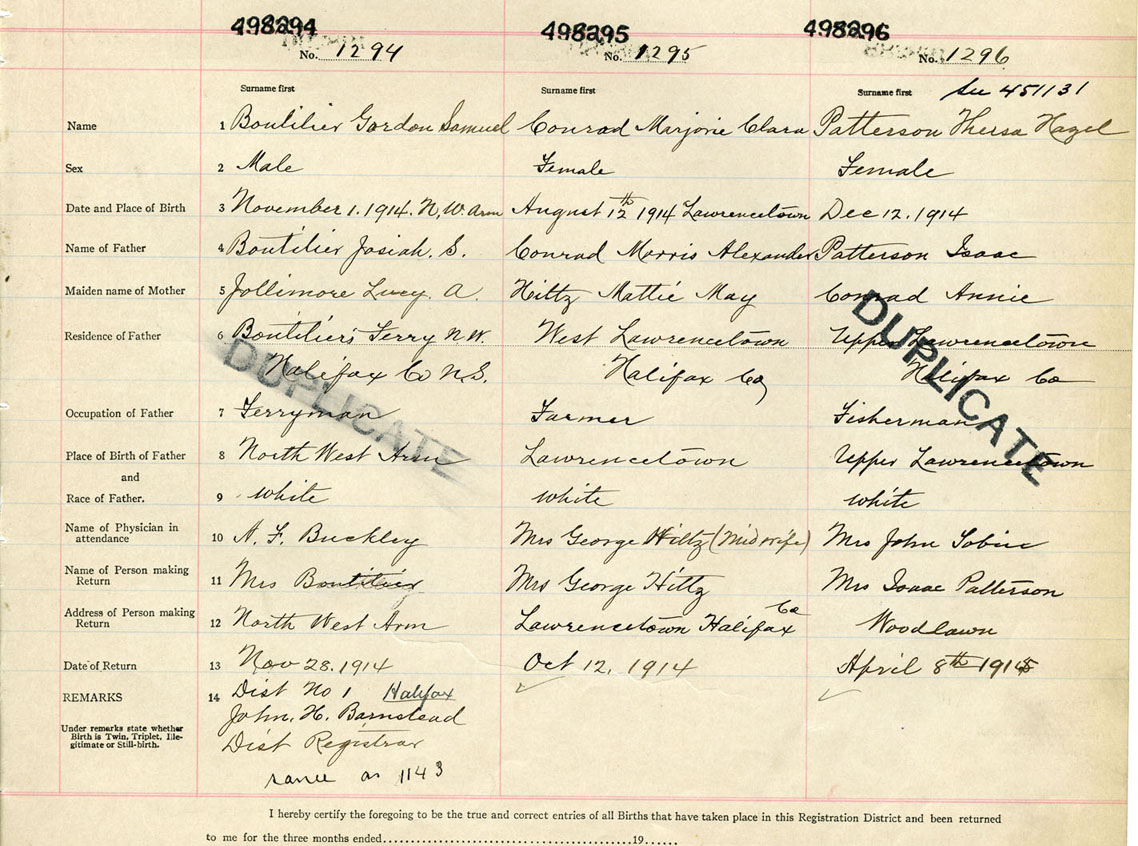 498294 498295 498296
No. 1294 No. 1295 No. 1296
Surname first Surname first Surname first See 451131
Name 1 Boutilier Gordon Samuel Conrad Marjorie Clara Patterson Thersa Hazel
Sex 2 Male Female Female
Date and Place of Birth 3 November 1. 1914. N. W. Arm August 12th 1914 Lawrencetown Dec 12. 1914
Name of Father 4 Boutilier Josiah. S. Conrad Morris Alexander Patterson Isaac
Maiden name of Mother 5 Jollimore Lucy. A. Hiltz Mattie May Conrad Annie
Residence of Father 6 Boutiliers Ferry N.W. West Lawrencetown Upper Lawrencetown
Halifax Co N.S. Halifax Co Halifax Co
DUPLICATE DUPLICATE
Occupation of Father 7 Ferryman Farmer Fisherman
Place of Birth of Father 8 North West Arm Lawrencetown Upper Lawrencetown
and
Race of Father. 9 white white white
Name of Physician in attendance 10 A. F. Buckley Mrs George Hiltz (Midwife) Mrs John
Name of Person making Return 11 Mrs Boutilier Mrs George Hiltz Mrs Isaac Patterson
Address of Person making Return 12 North West Arm Lawrencetown Halifax Co Woodlawn
Date of Return 13 Nov 28. 1914 Oct 12, 1914 April 8th 1915
REMARKS 14 Dist No 1 Halifax
John. H. Barnstead
Under remarks state whether
Birth is Twin, Triplet, Ille-
gitimate or Still-birth.
Dist Registrar
same as 1143
I hereby certify the foregoing to be the true and correct entries of all Births that have taken place in this Registration District and been returned
to me for the three months ended 19